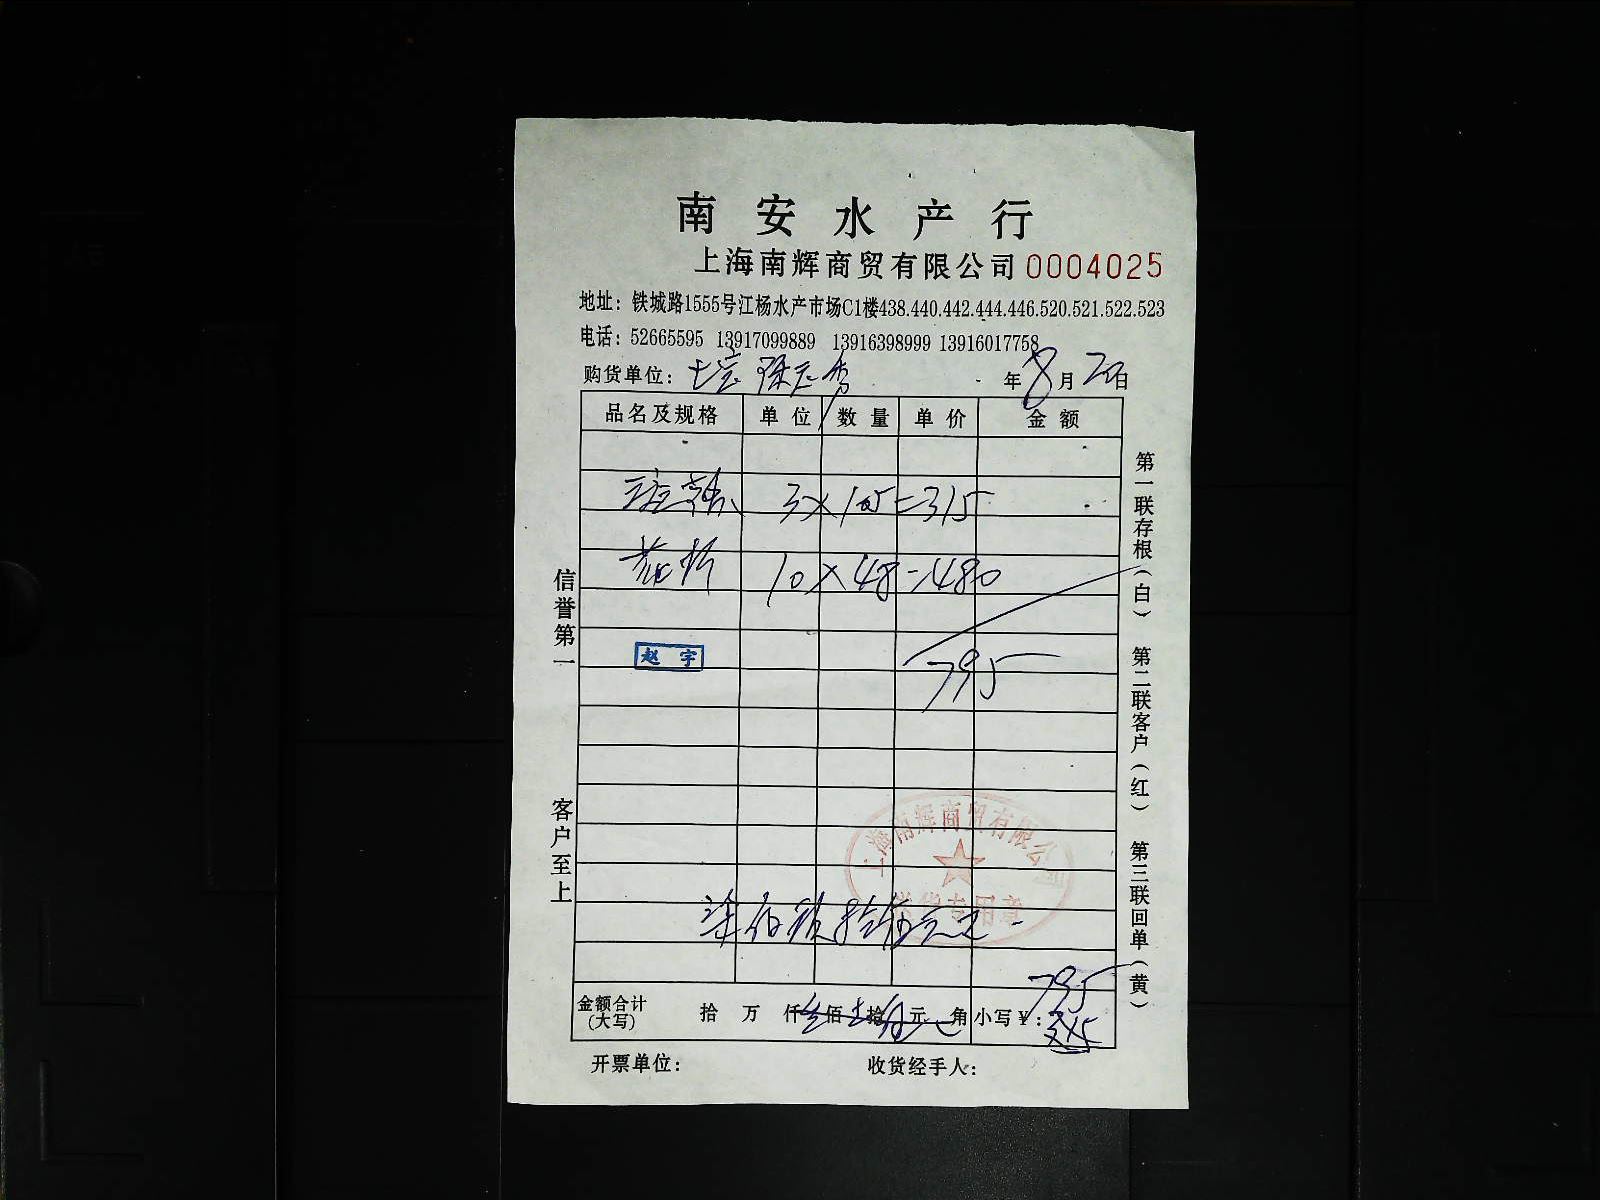 南安水产行
上海南辉商贸有限公司 0004025
地址：铁城路1555号江杨水产市场C1楼438.440.442.444.446.520.521.522.523
电话：52665595 13917099889 13916398999 13916017758
购货单位： 年8月20日
品名及规格 单位 数量 单价 金额
3×105=315
10×48=480
赵宇
795
上海南辉商贸有限公司
柒佰玖拾伍元正
795
金额合计（大写） 拾 万 仟 佰 拾 元 角 小写¥：
开票单位： 收货经手人：
信誉第一
客户至上
第一联存根（白） 第二联客户（红） 第三联回单（黄）